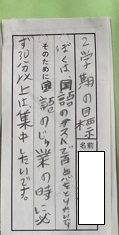 2学期の目標
名前
ぼくは国語のテストで百点をとりたいです。
そのために国語のじゅ業の時に必
ず30分以上は集中したいです。